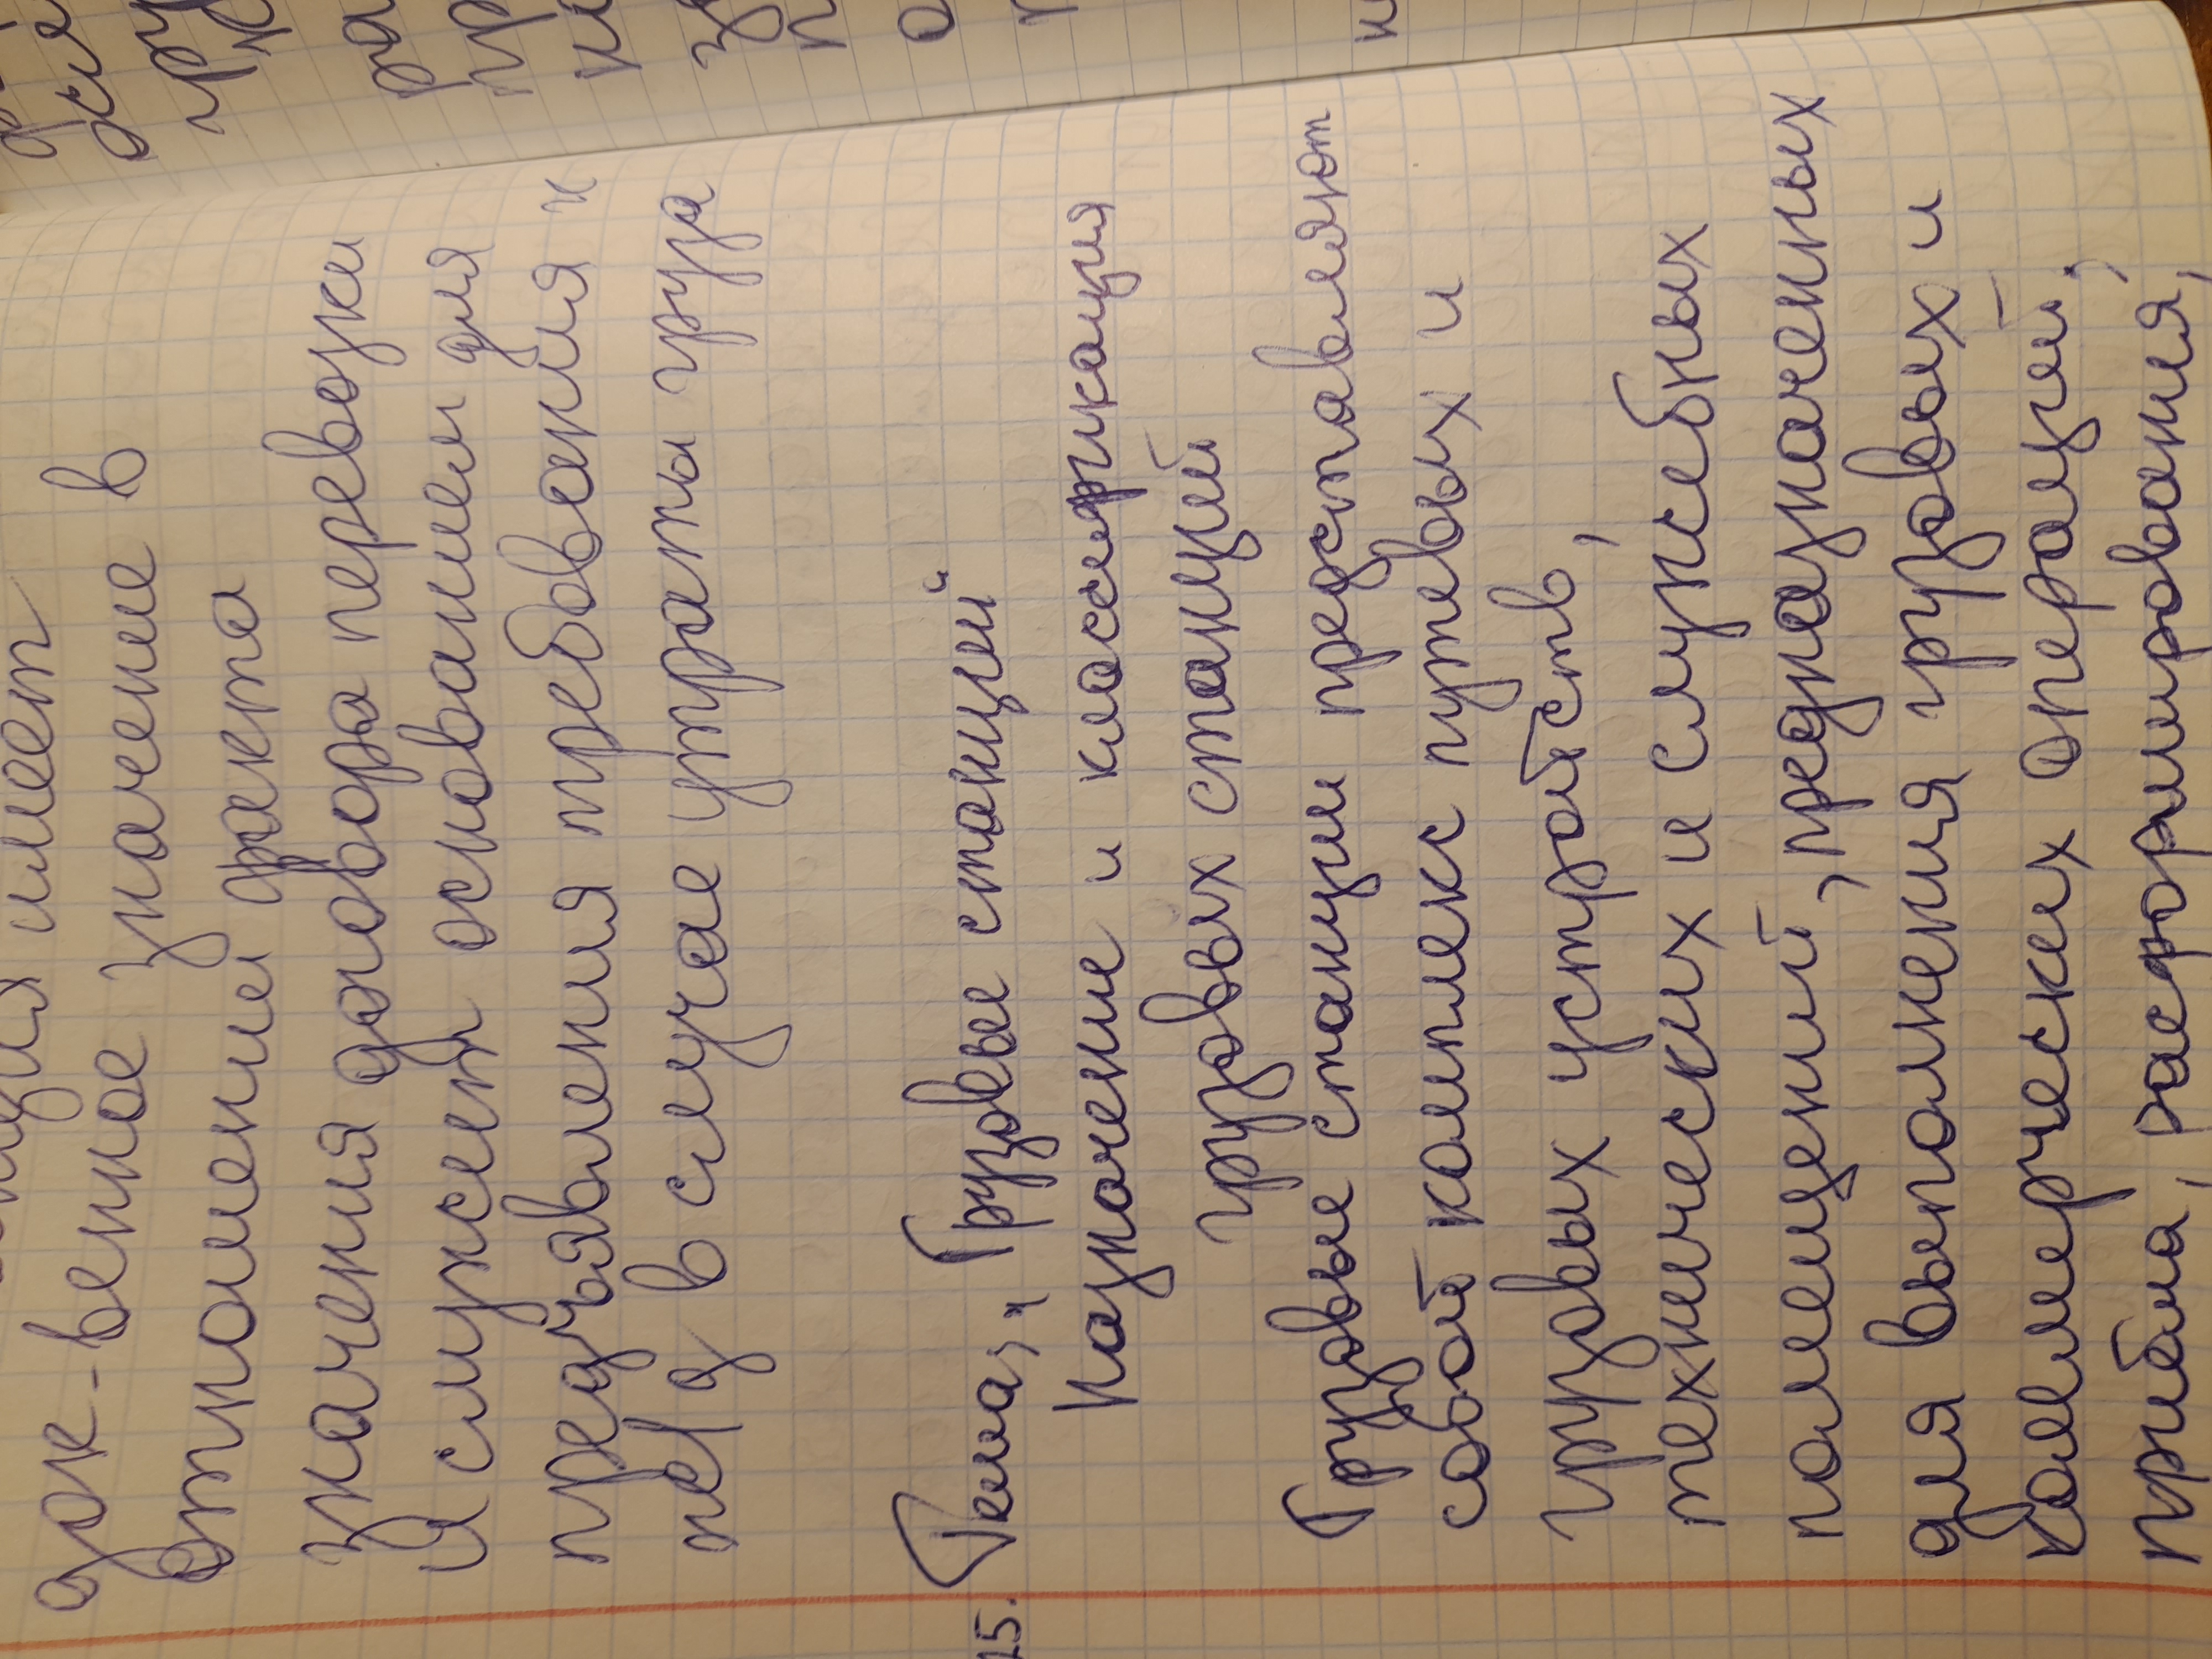 имеет
док-венное значение в
отношении факта
значения договора перевозки
и служет основанием для
предъявления требования к
пер/д в случае утраты груза
25. Тема: "Грузовые станций"
Назначение и классификация
грузовых станций
Грузовые станции представляют
собой комплекс путевых и
грузовых устройств,
технических и служебных
помещений, предназначенных
для выполнения грузовых и
коммерческих операций;
приёма, расформирования,